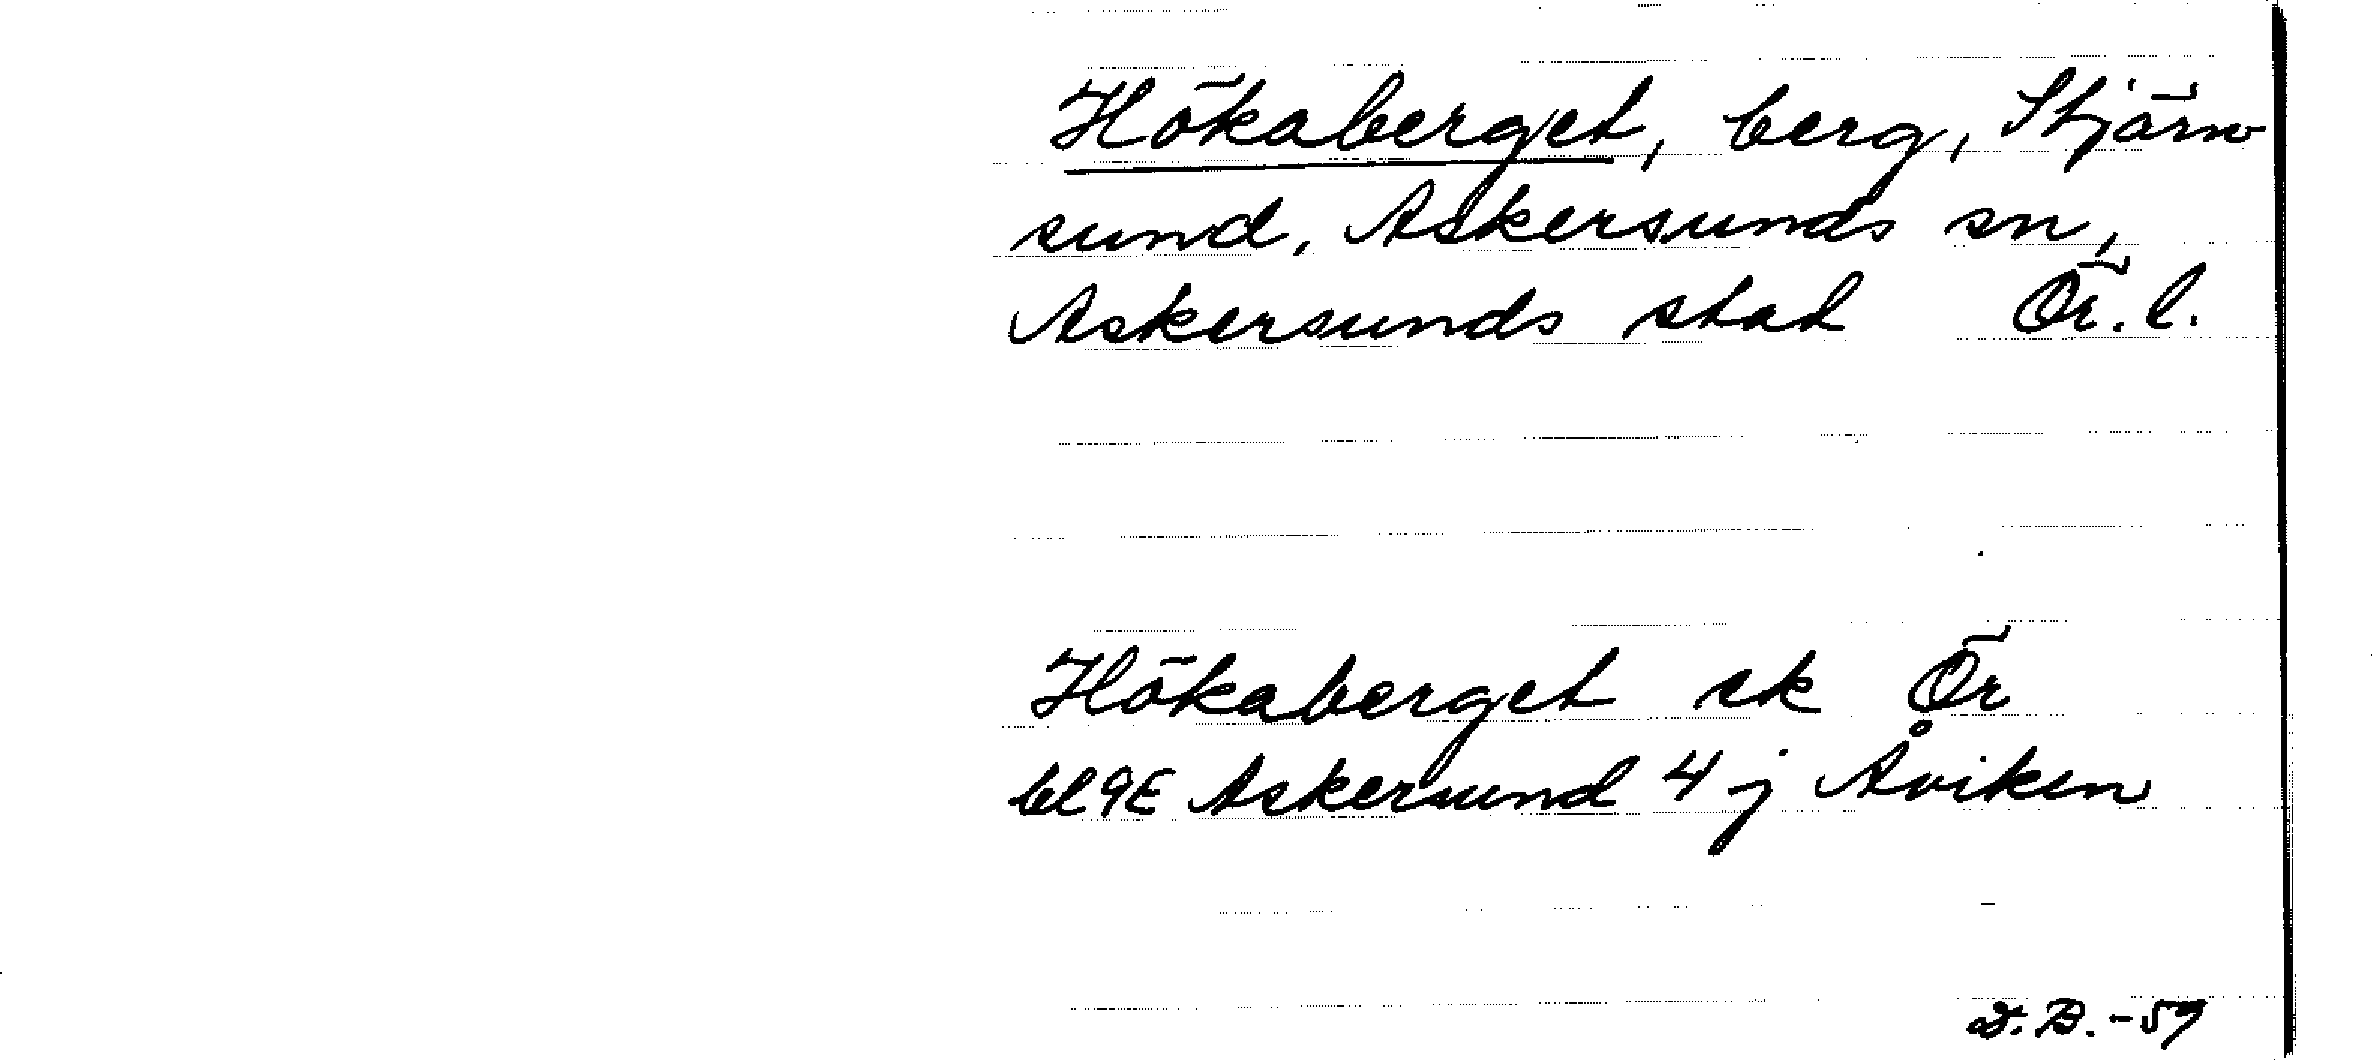 Hökaberget, berg, Stjärn
sund, Askersunds sn,
Askersunds stad Ör. l.
Hökaberget ek Ör
bl 9E Askersund 4 j Åviken
D.B.-59